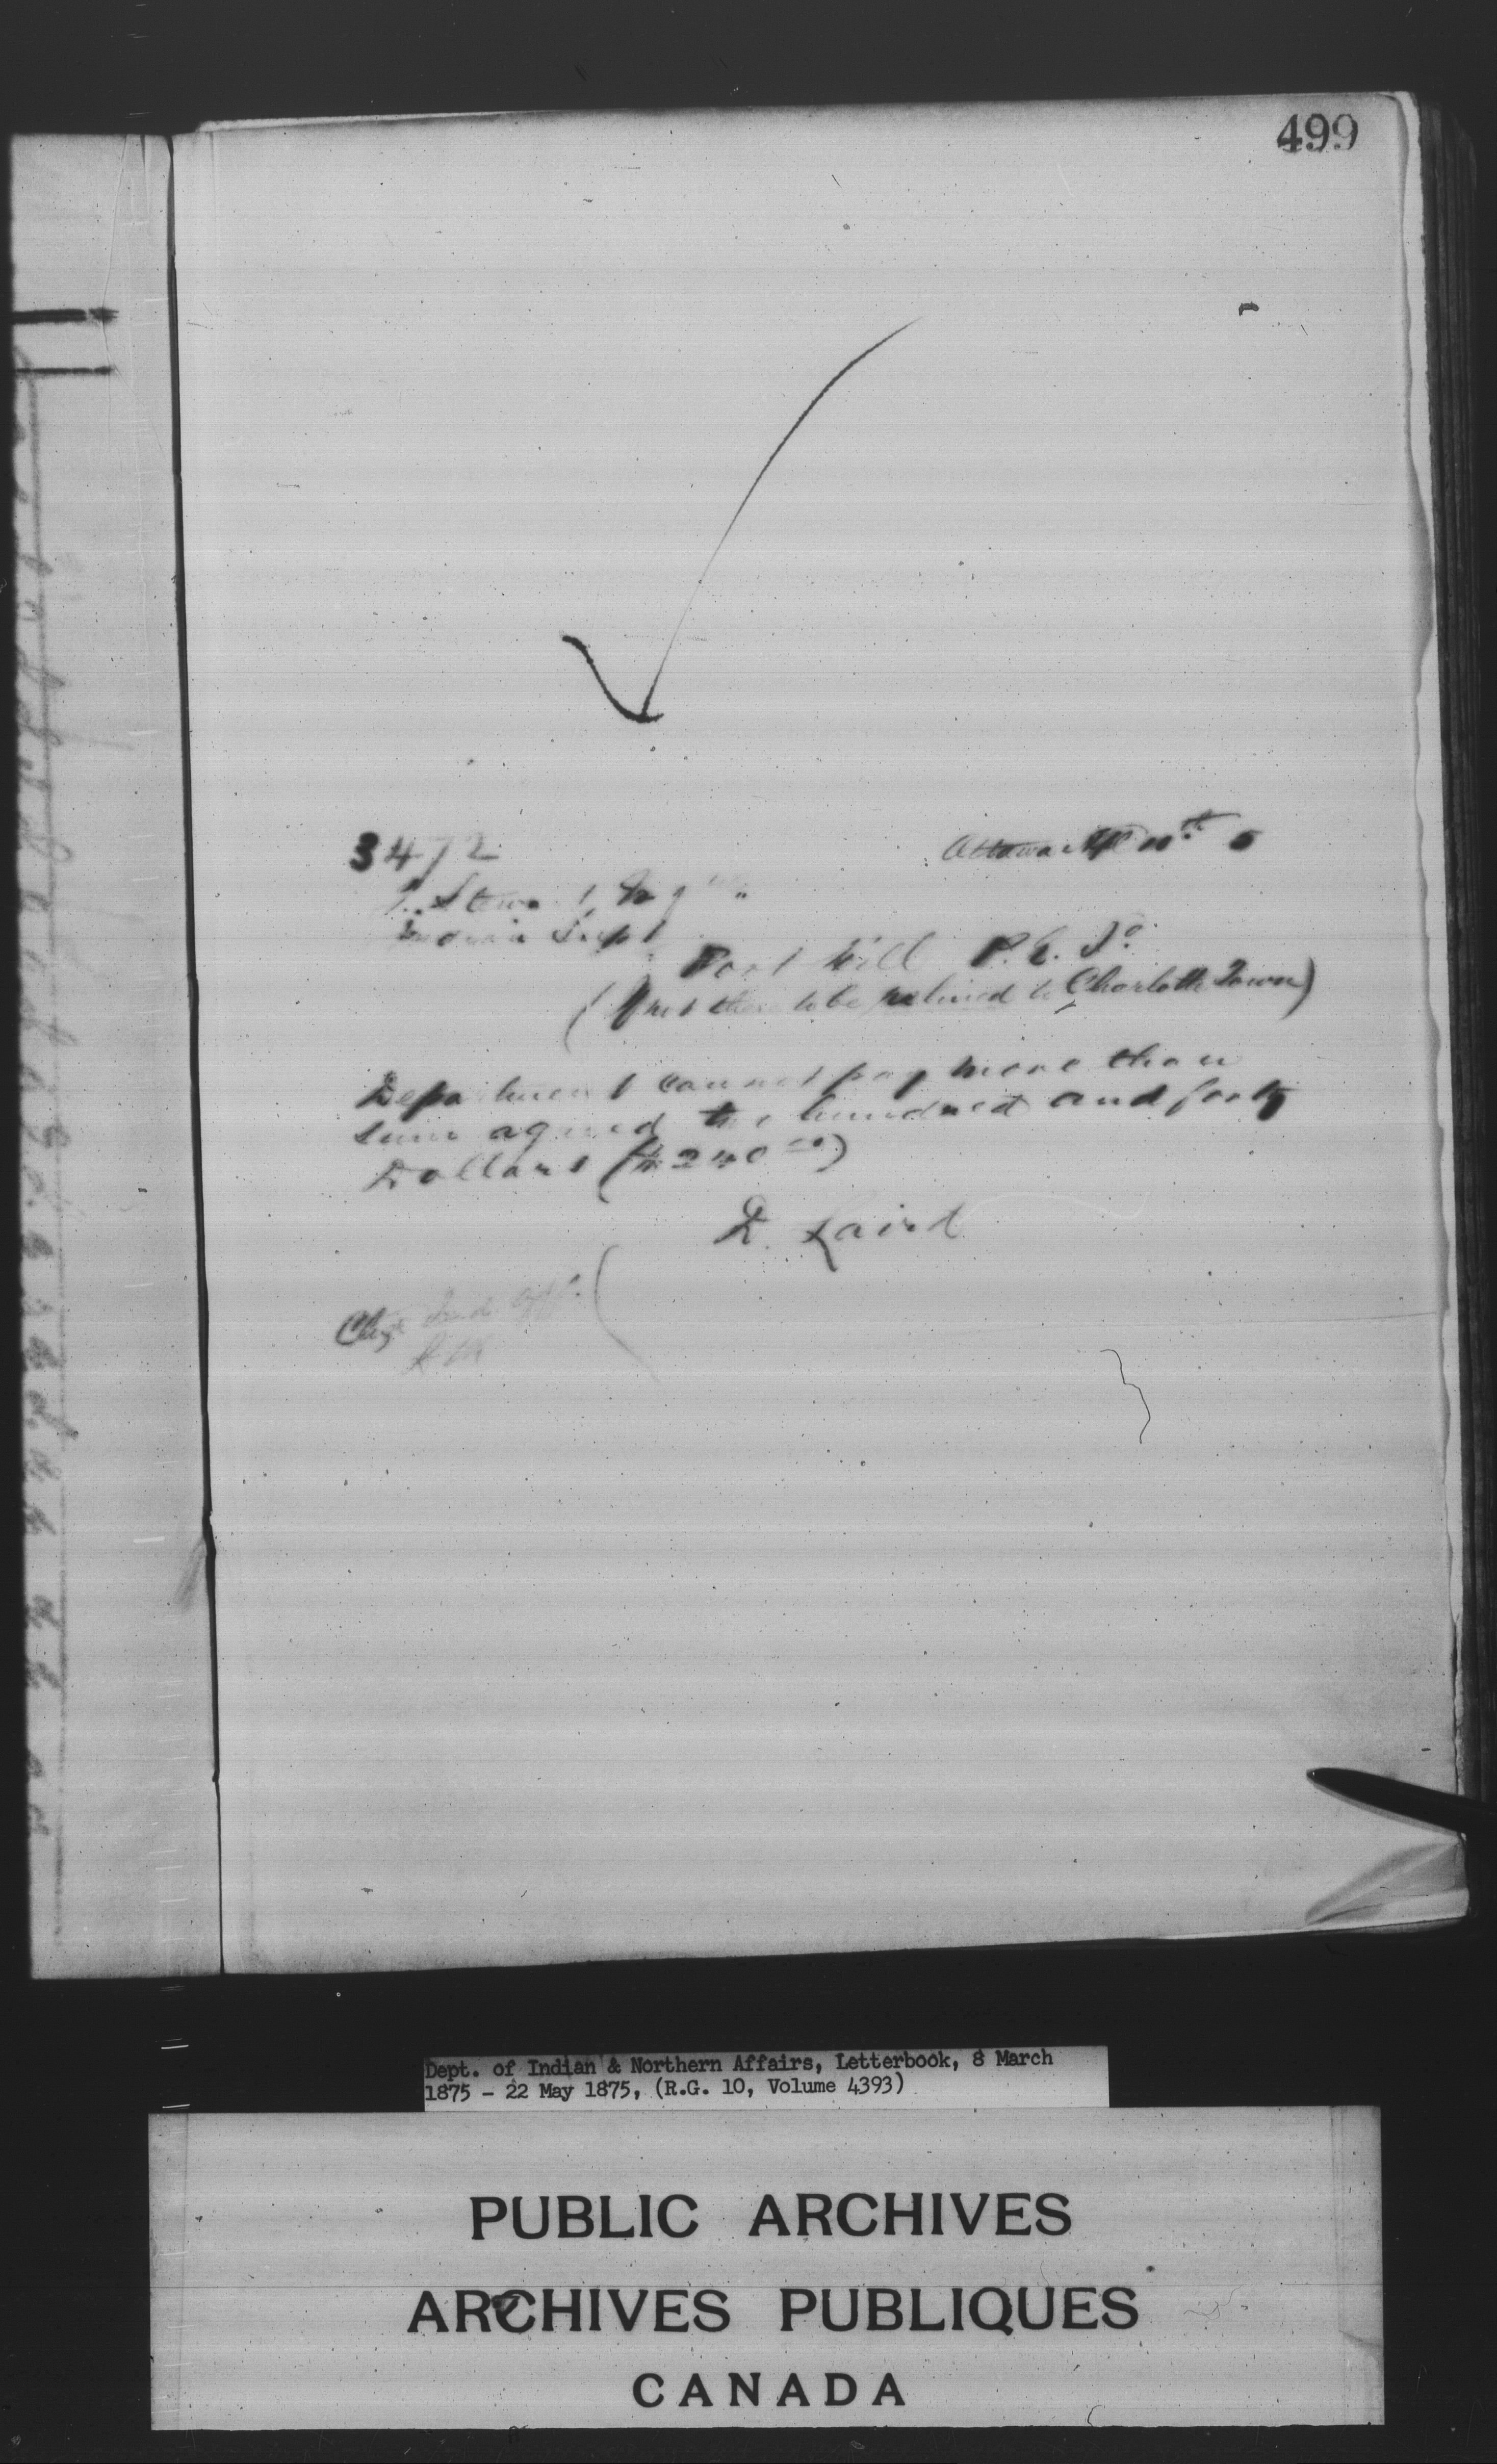 499
3472
Ottawa Apl
Indian Supt
Port Hill P. E. Id
(If not there to be retained to Charlotte Town)
Department cannot pay more than
sum agreed two hundred and forty
Dollars ($240 00)
D. Laird
Chge Ind. Off.
Dept. of Indian & Northern Affairs, Letterbook, 8 March
1875 - 22 May 1875, (R.G. 10, Volume 4393)
PUBLIC ARCHIVES
ARCHIVES PUBLIQUES
CANADA